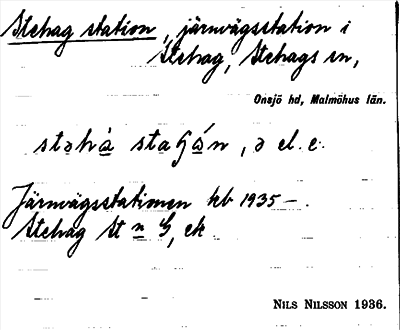 Stehag station, järnvägsstation i
Stehag, Stehags sn,
Onsjö hd, Malmöhus län.
stəhà staʃɔ́n, ə el. e.
Järnvägsstationen kb 1935 —.
Stehag st n G, ek
NILS NILSSON 1936.